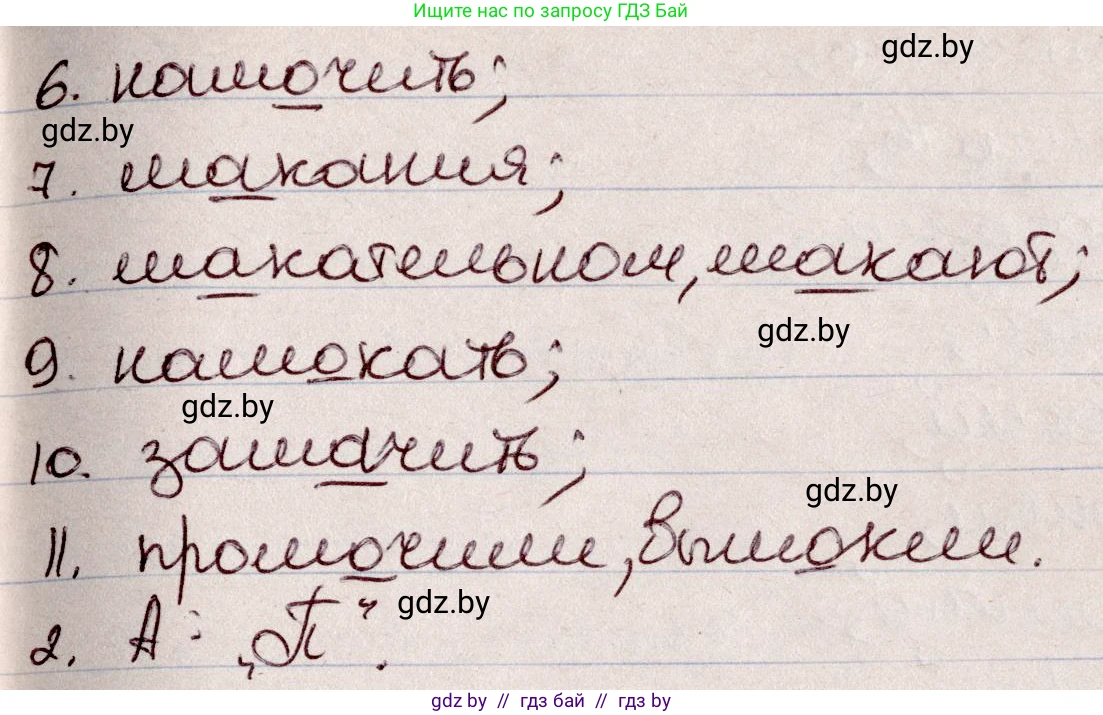 Ищите нас по запросу ГДЗ Бай
gdz.by
6. намочить;
gdz.by
7. макания;
8. макательном, макают;
gdz.by
9. намокать;
gdz.by
10. замачить;
gdz.by
11. промочили, вымокли.
gdz.by
2. А: „П“.
gdz.by // гдз бай // гдз by